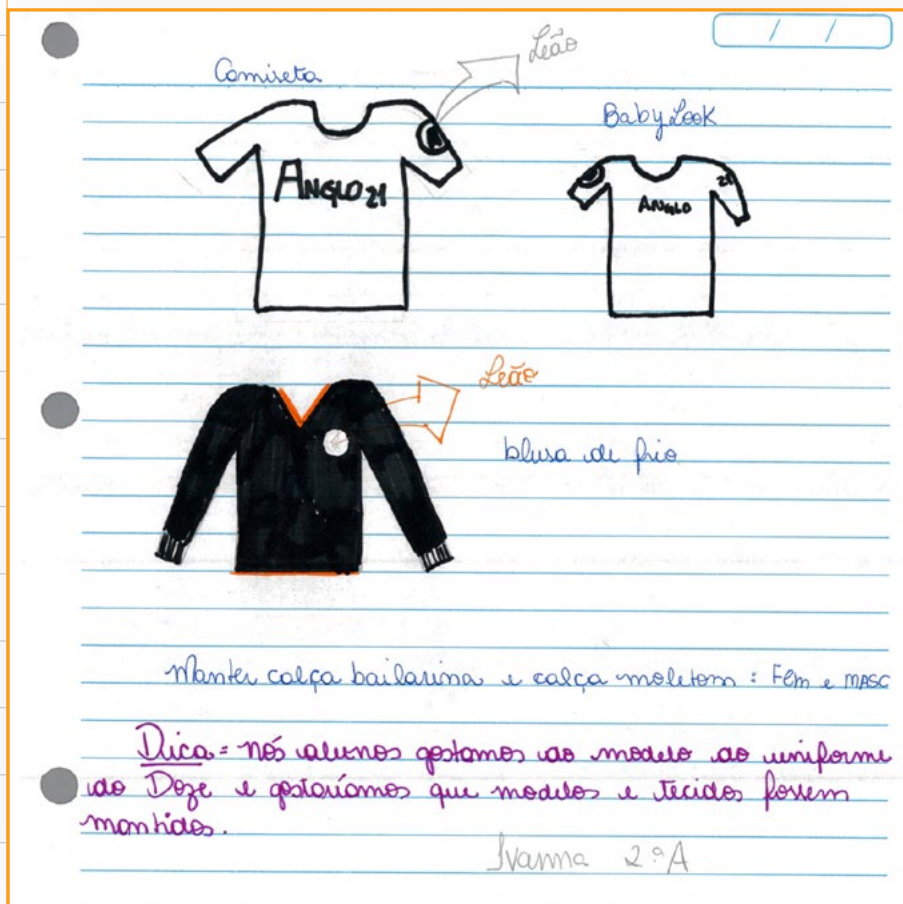 / /
Leão
Camiseta
Baby Look
ANGLO 21
21
ANGLO
Leão
blusa de frio
Manter calça bailarina e calça moletom : Fem e MASC
Dica = nós alunos gostamos do modelo do uniforme
do Doze e gostaríamos que modelos e tecidos fossem
mantidos.
Ivanna 2ºA